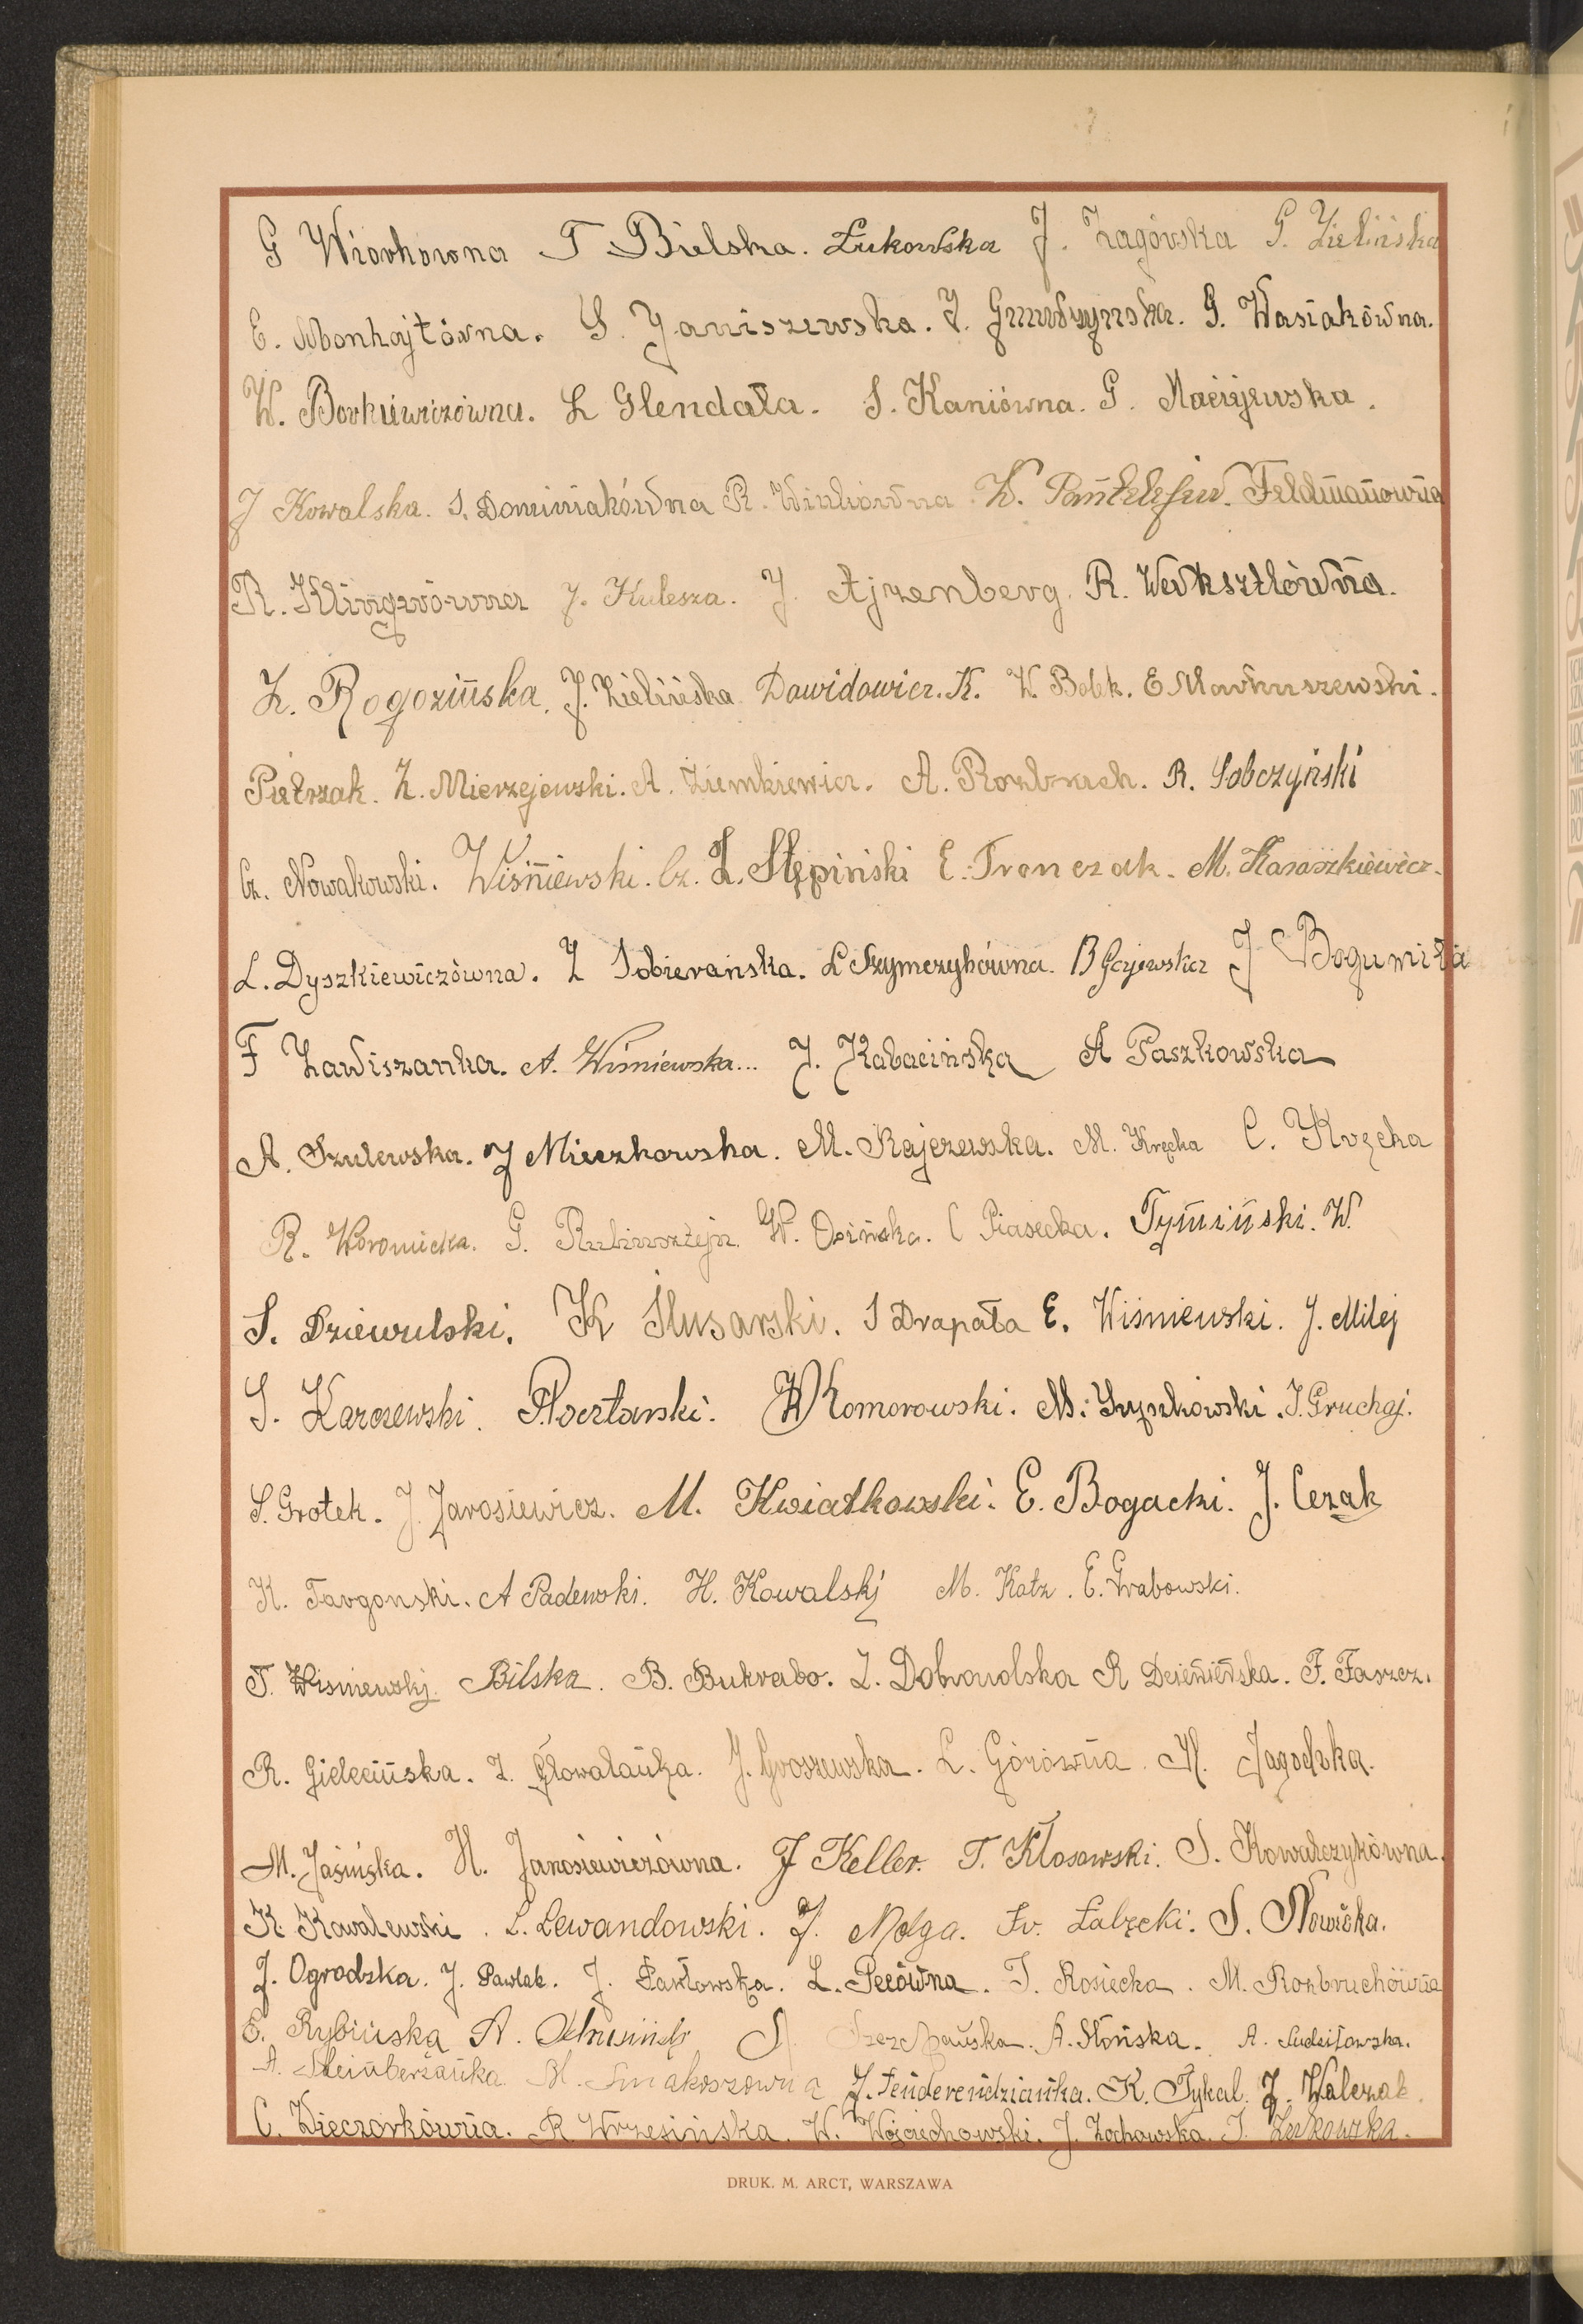 G Wiórkówna T Bielska. Żukowska J. Zagórska G. Zielińska
E. Monhajtówna. S. Janiszewska. J. G. Wasiakówna.
W. Borkiewiczówna. L Glendała. S. Kaniówna. G. Maciejewska.
J Kowalska. S. Dominiakówna R. W. Pantelejew. Feldmanowna
R. Klingerówna J. Kulesza. J. Ajzenberg. R. Weksztlówna.
Z. Rogozińska. J. Zielińska Dawidowicz. K. W. Bobk. E Markuszewski.
Pietrzak. Z. Mierzejewski. A. Ziemkiewicz. A. Rozbruch. R. Sobczyński
Cz. Nowakowski. Wiśniewski. Cz. Z. Stępiński E. Tronczak. M. Karaszkiewicz.
L. Dyszkiewiczówna. Z Sobierańska. L Szymczykówna. B Gajewska J Bogumiła
F Zawiszanka. A. Wiśniewska... J. Kabacińska A Paszkowska
A. Szulewska. J Mieczkowska. M. Rajczewska. M. Kręcka C. Kręcka
R. Woronicka. G. Rubinsztejn. W. Osińska. C Piasecka. Tymiński. W.
S. Dziewulski. K Ślusarski. S Drapała E. Wiśniewski. J. Milej
S. Karczewski. Płocztarski. W Komorowski. M. J. Gruchaj.
S. Grotek. J. Jarosiewicz. M. Kwiatkowski. E. Bogacki. J. Cezak
K. Targonski. A Padewski. H. Kowalskj M. Katz. E. Grabowski.
T. Wisniewskj. Bilska. B. Bukrabo. Z. Dobrowolska R F. Faszcz.
R. Gielecińska. Z. Głowalanka. J. Groszewska. L. Górówna. H. Jagodzka.
M. Jasińska. H. Jarosiewiczówna. J Keller. T. Kłosowski. S. Kowalczykówna.
K. Kowalewski. L. Lewandowski. J. Molga. Fr. Zalęcki. S. Nowicka.
J. Ogrodzka. J. Pawlak. J. Pawłowska. L. Pecówna. T. Rosiecka. M. Rozbruchówna
E. Rybińska A. S. A. Słońska. A.
A. Steinberżanka M. Smakoszowna J. Fenderendzianka. K. Tykal. J. Walczak.
C. Wieczorkówna. R Wrzesińska. W. Wojciechowski. J. Zochowska. T. Żukowska.
DRUK. M. ARCT, WARSZAWA